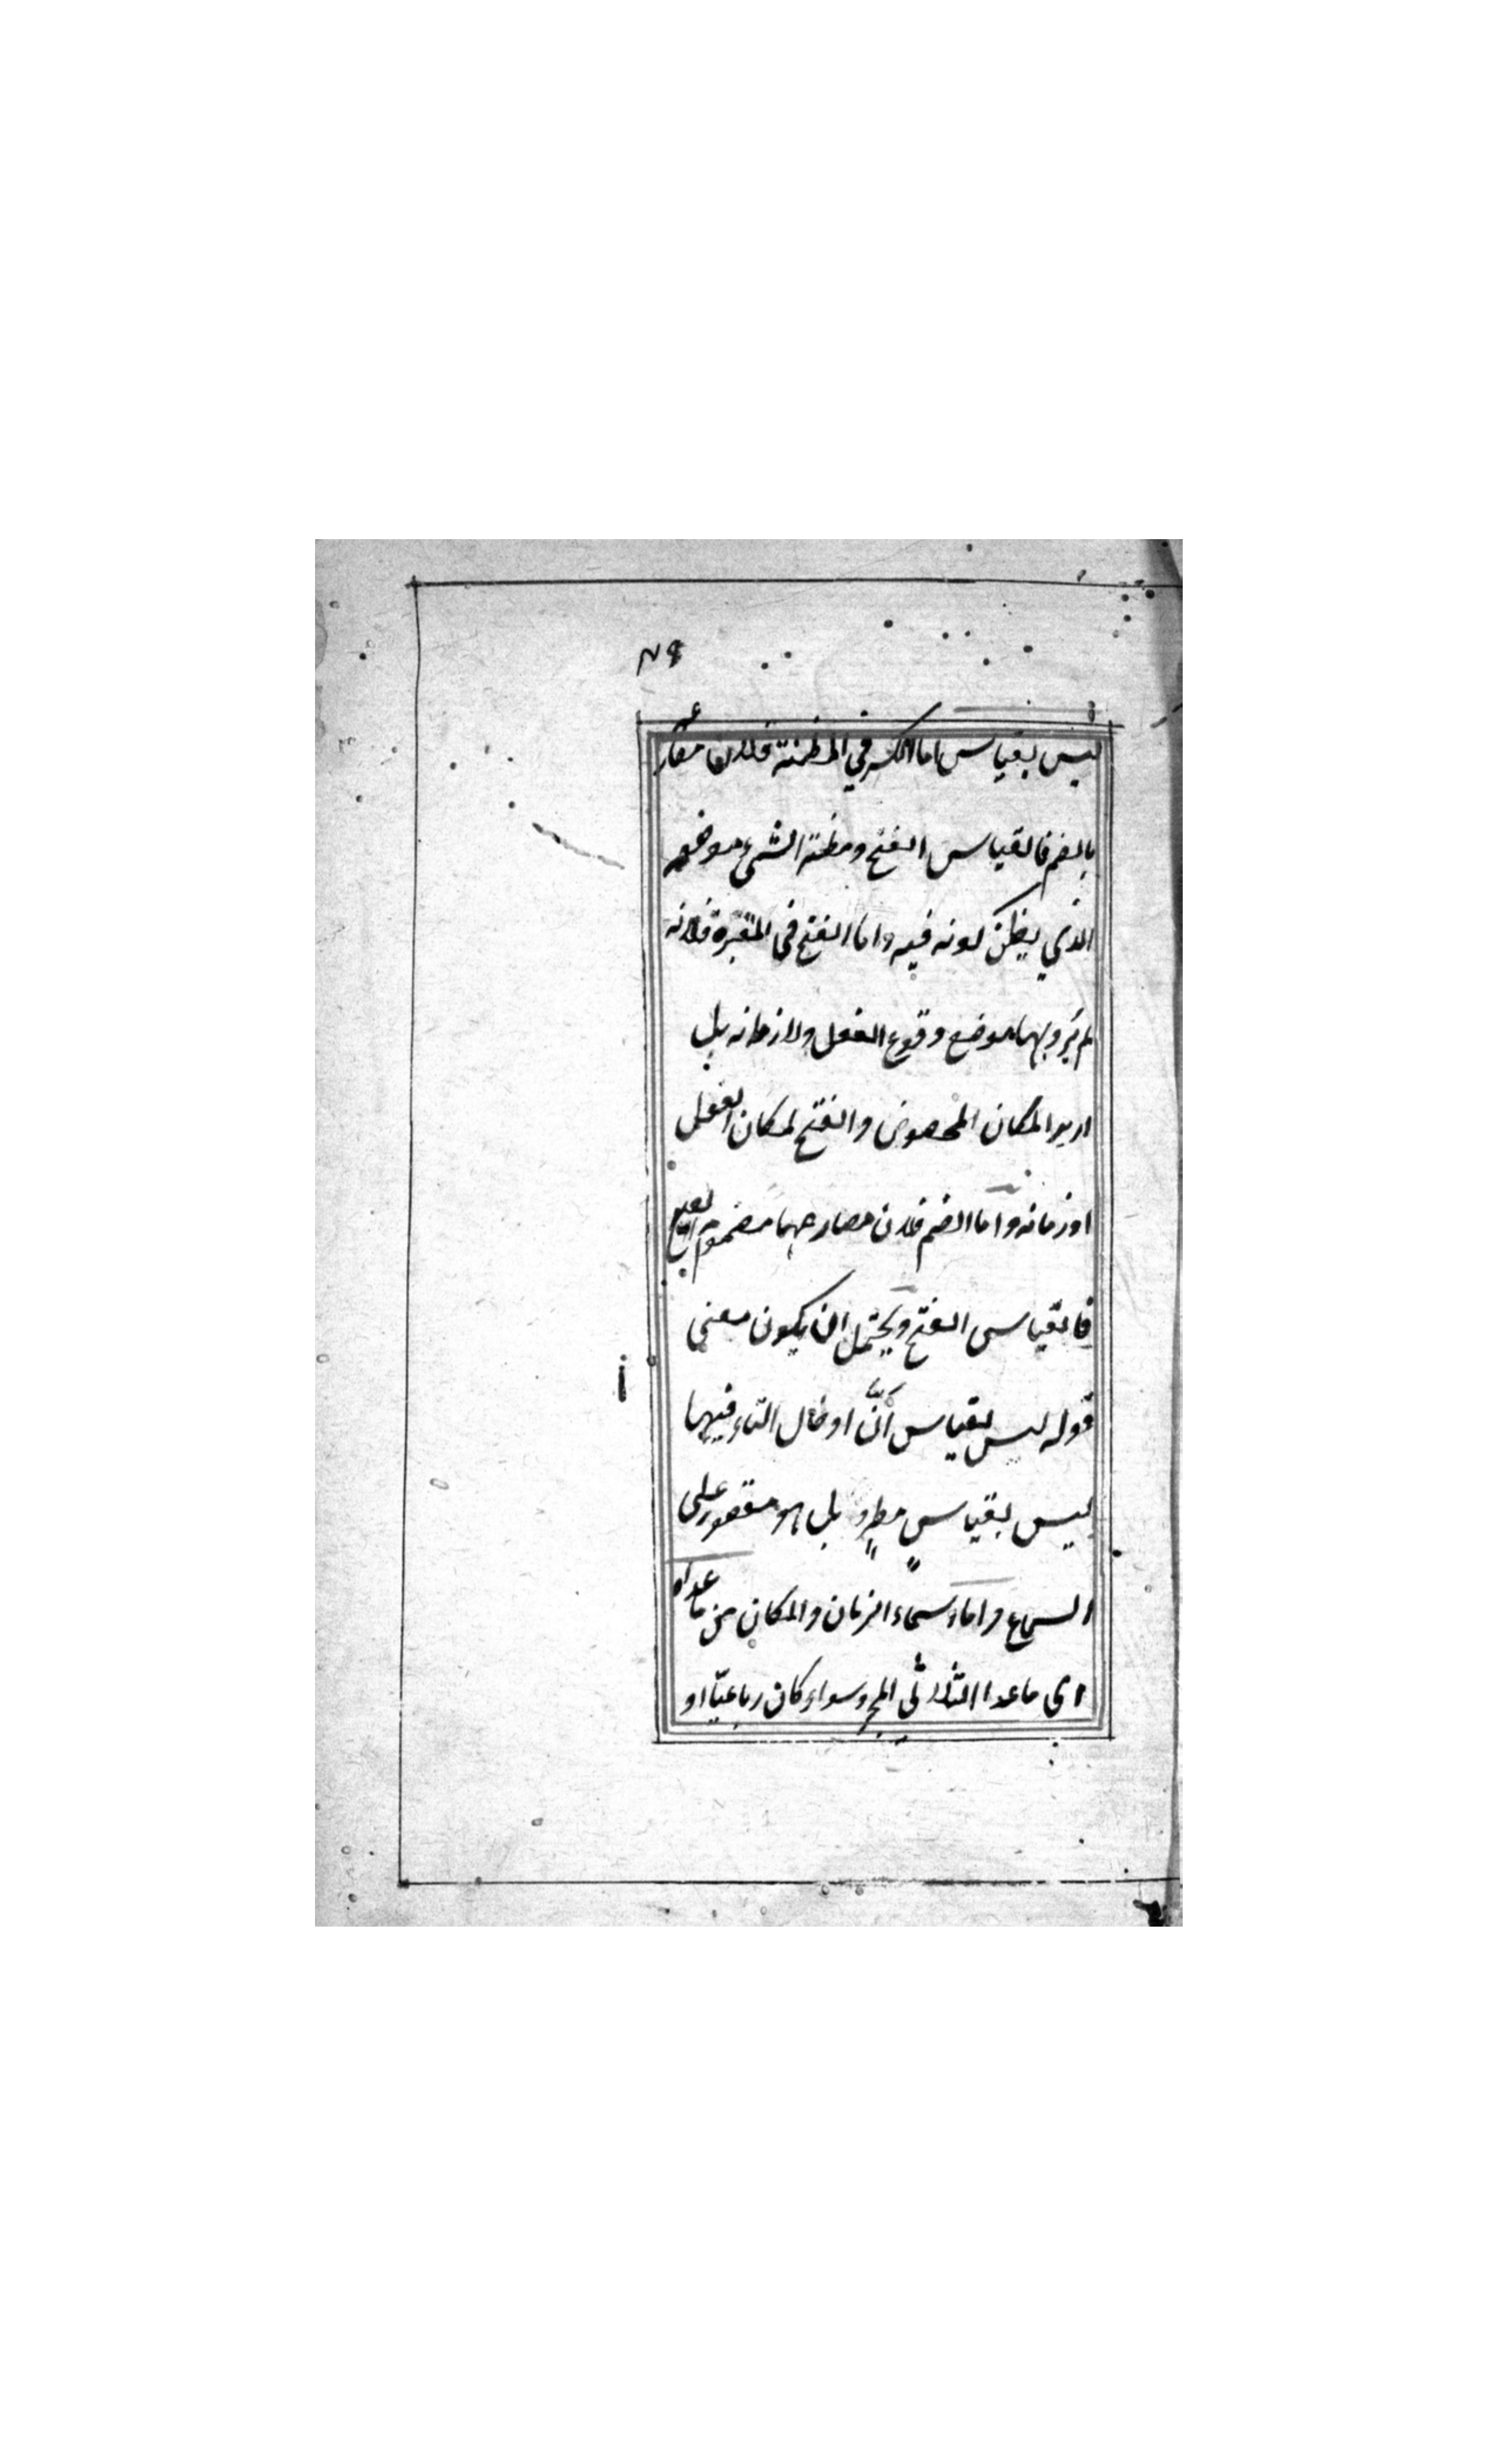 ٧٩
ليس بقياس اما الكسر في المظنة فلان مضارعه
بالضم فالقياس الفتح ومظنة الشئ موضعه
الذي يظن كونه فيه واما الفتح في المقبرة فلانه
لم يرد بها موضع وقوع الفعل ولا زمانه بل
اريد المكان المخصوص والفتح لمكان الفعل
او زمانه واما الضم فلان مضارعهما مضموم العين
فالقياس الفتح ويحتمل ان يكون معنى
قوله ليس بقياس أنّ ادخال التاء فيها
ليس بقياسٍ مطردٍ بل هو مقصور على
السماع واما اسماء الزمان والمكان من ما عداه
اى ما عدا الثلاثي المجرد سواء كان رباعيّا او